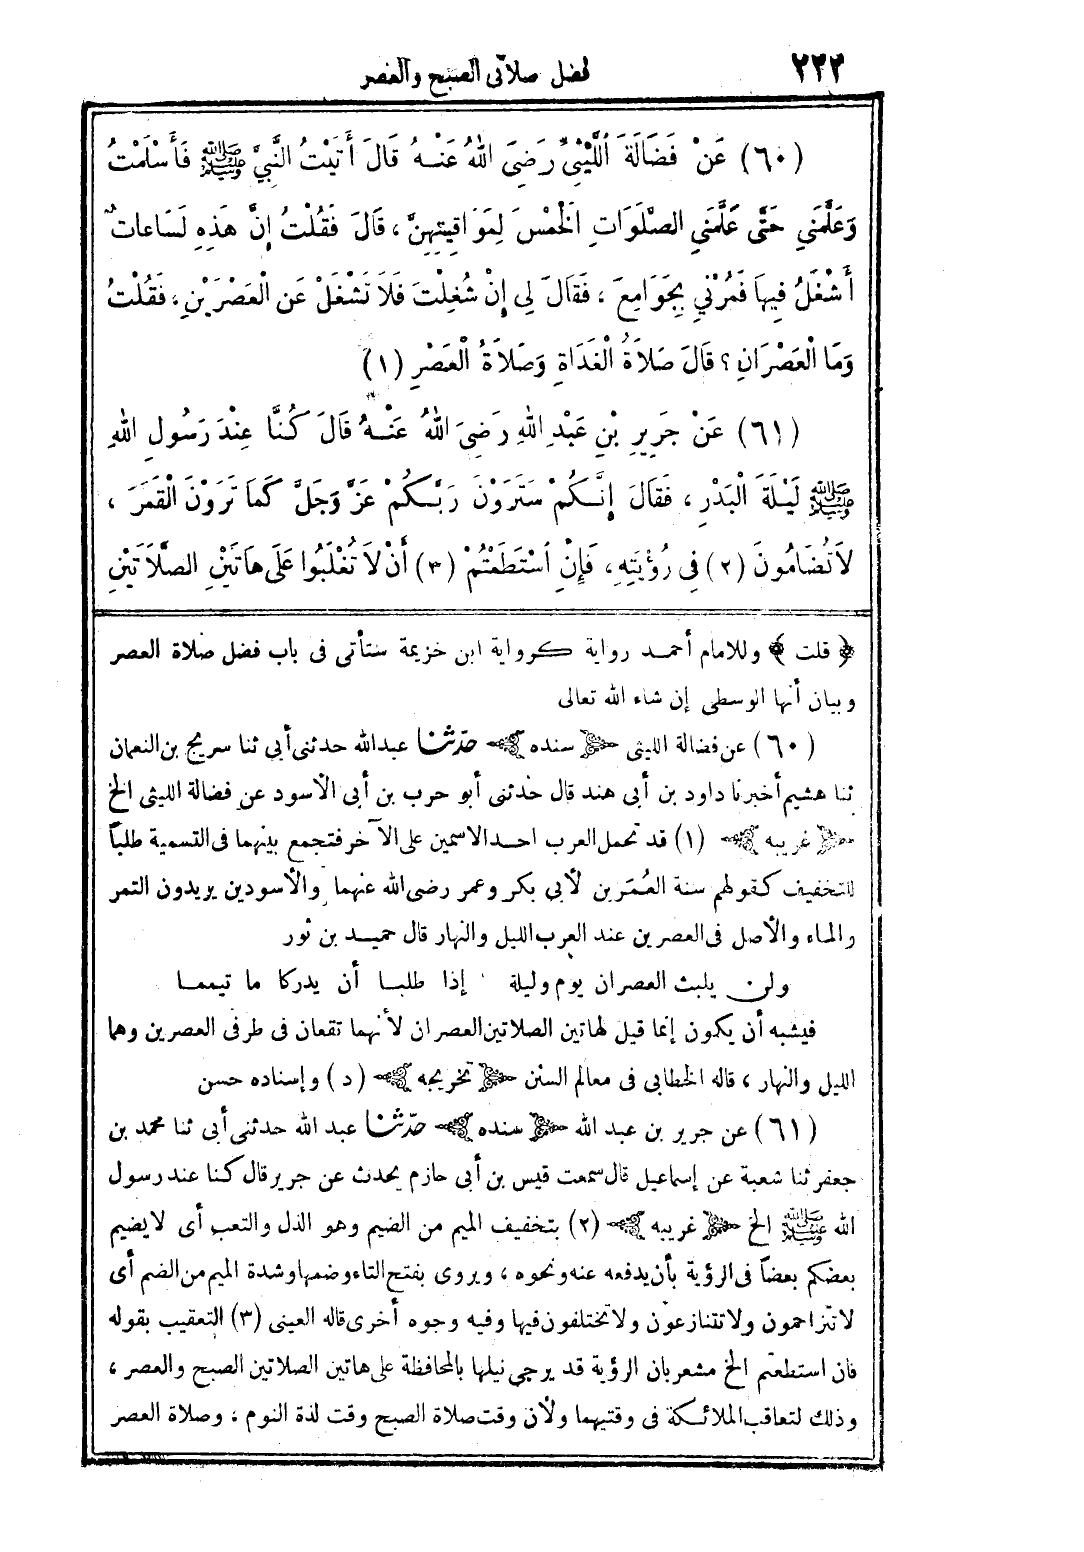 ٢٢٢ فضل صلاتى الصبح والعصر
(٦٠) عَنْ فَضَالَةَ اللَّيْثِيِّ رَضِيَ اللهُ عَنْهُ قَالَ أَتَيْتُ النَّبِيَّ ﷺ فَأَسْلَمْتُ
وَعَلَّمَنِي حَتَّى عَلَّمَنِي الصَّلَوَاتِ الْخَمْسَ لِمَوَاقِيتِهِنَّ ، قَالَ فَقُلْتُ إِنَّ هَذِهِ لَسَاعَاتٌ
أُشْغَلُ فِيهَا فَمُرْنِي بِجَوَامِعَ ، فَقَالَ لِي إِنْ شُغِلْتَ فَلَا تُشْغَلْ عَنِ الْعَصْرَيْنِ ، فَقُلْتُ
وَمَا الْعَصْرَانِ ؟ قَالَ صَلَاةُ الْغَدَاةِ وَصَلَاةُ الْعَصْرِ (١)
(٦١) عَنْ جَرِيرِ بْنِ عَبْدِ اللهِ رَضِيَ اللهُ عَنْهُ قَالَ كُنَّا عِنْدَ رَسُولِ اللهِ
ﷺ لَيْلَةَ الْبَدْرِ ، فَقَالَ إِنَّكُمْ سَتَرَوْنَ رَبَّكُمْ عَزَّ وَجَلَّ كَمَا تَرَوْنَ الْقَمَرَ ،
لَا تُضَامُونَ (٢) فِي رُؤْيَتِهِ ، فَإِنِ اسْتَطَعْتُمْ (٣) أَنْ لَا تُغْلَبُوا عَلَى هَاتَيْنِ الصَّلَاتَيْنِ
﴿ قلت ﴾ وللامام أحمد رواية كرواية ابن خزيمة ستأتى فى باب فضل صلاة العصر
وبيان أنها الوسطى إن شاء الله تعالى
(٦٠) عن فضالة الليثى ﴿ سنده ﴾ حدّثنا عبدالله حدثنى أبى ثنا سريج بن النعمان
ثنا هشيم أخبرنا داود بن أبى هند قال حدثنى أبو حرب بن أبى الأسود عن فضالة الليثى الخ
﴿ غريبه ﴾ (١) قد تحمل العرب احد الاسمين على الآخر فتجمع بينهما فى التسمية طلبًا
للتخفيف كقولهم سنة العُمَرين لأبى بكر وعمر رضى الله عنهما والأسودين يريدون التمر
والماء والأصل فى العصرين عند العرب الليل والنهار قال حميد بن ثور
ولن يلبث العصران يوم وليلة إذا طلبا أن يدركا ما تيمما
فيشبه أن يكون إنما قيل لهاتين الصلاتين العصران لأنهما تقعان فى طرفى العصرين وهما
الليل والنهار ، قاله الخطابى فى معالم السنن ﴿ تخريجه ﴾ (د) وإسناده حسن
(٦١) عن جرير بن عبد الله ﴿ سنده ﴾ حدّثنا عبد الله حدثنى أبى ثنا محمد بن
جعفر ثنا شعبة عن إسماعيل قال سمعت قيس بن أبى حازم يحدث عن جرير قال كنا عند رسول
الله ﷺ الخ ﴿ غريبه ﴾ (٢) بتخفيف الميم من الضيم وهو الذل والتعب أى لا يضيم
بعضكم بعضًا فى الرؤية بأن يدفعه عنه ونحوه ، ويروى بفتح التاء وضمها وشدة الميم من الضم أى
لا تتزاحمون ولا تتنازعون ولا تختلفون فيها وفيه وجوه أخرى قاله العينى (٣) التعقيب بقوله
فان استطعتم الخ مشعر بان الرؤية قد يرجى نيلها بالمحافظة على هاتين الصلاتين الصبح والعصر ،
وذلك لتعاقب الملائكة فى وقتيهما ولأن وقت صلاة الصبح وقت لذة النوم ، وصلاة العصر